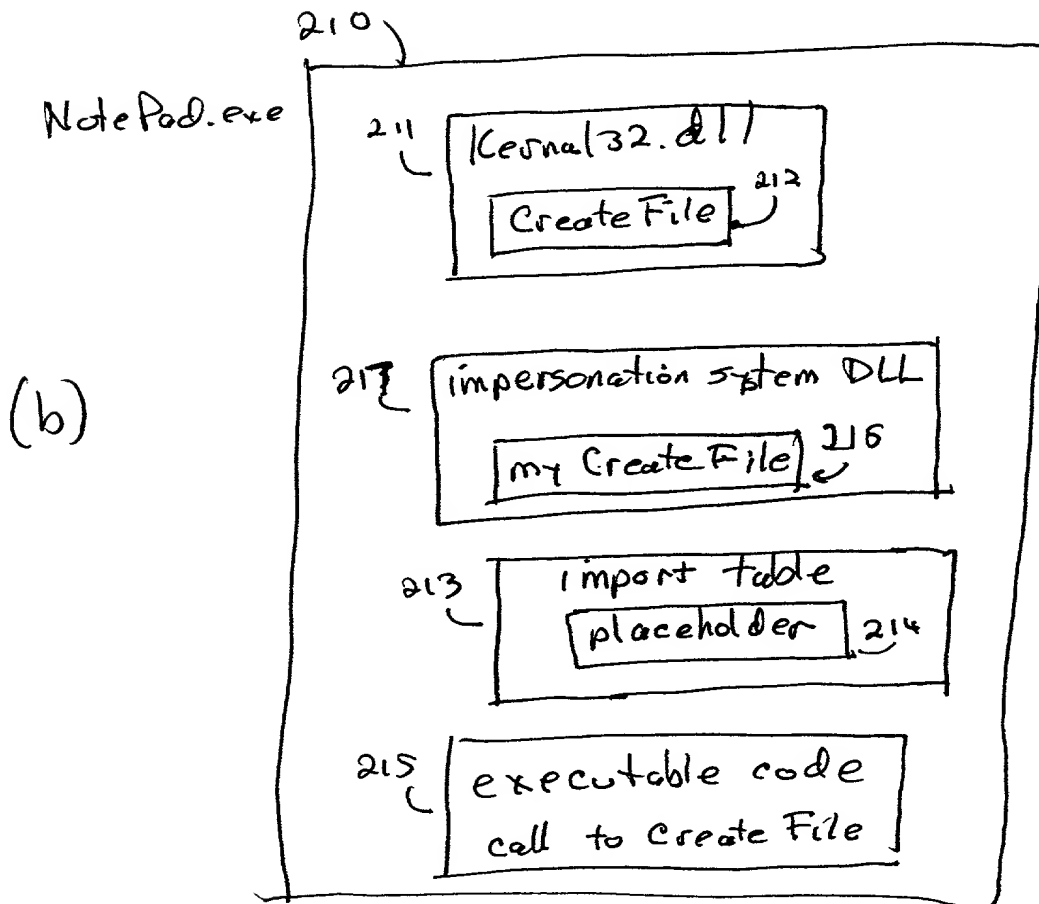 210
NotePad.exe
211
Kernal32.dll
212
CreateFile
(b)
217
impersonation system DLL
216
my CreateFile
213
import table
placeholder
214
215
executable code
call to Create File